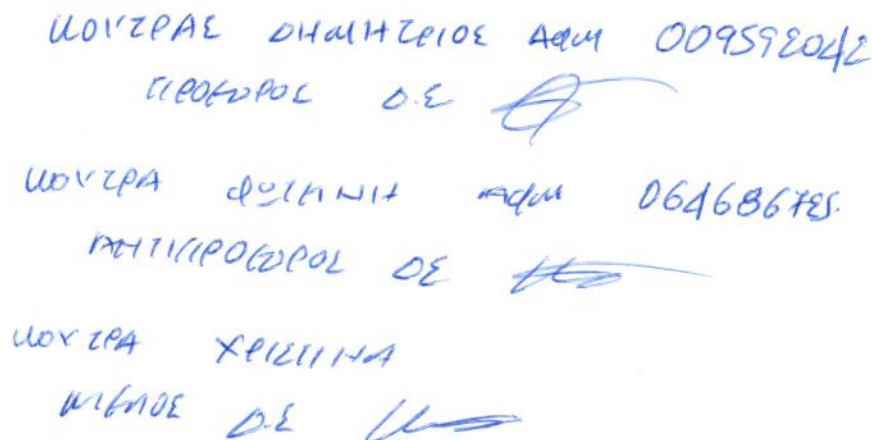 ΚΟΥΤΡΑΣ ΔΗΜΗΤΡΙΟΣ ΑΦΜ 009592042
ΠΡΟΕΔΡΟΣ Δ.Σ
ΚΟΥΤΡΑ ΦΩΤΕΙΝΗ ΑΦΜ
ΑΝΤΙΠΡΟΕΔΡΟΣ ΔΣ
ΚΟΥΤΡΑ ΧΡΙΣΤΙΝΑ
ΜΕΛΟΣ Δ.Σ